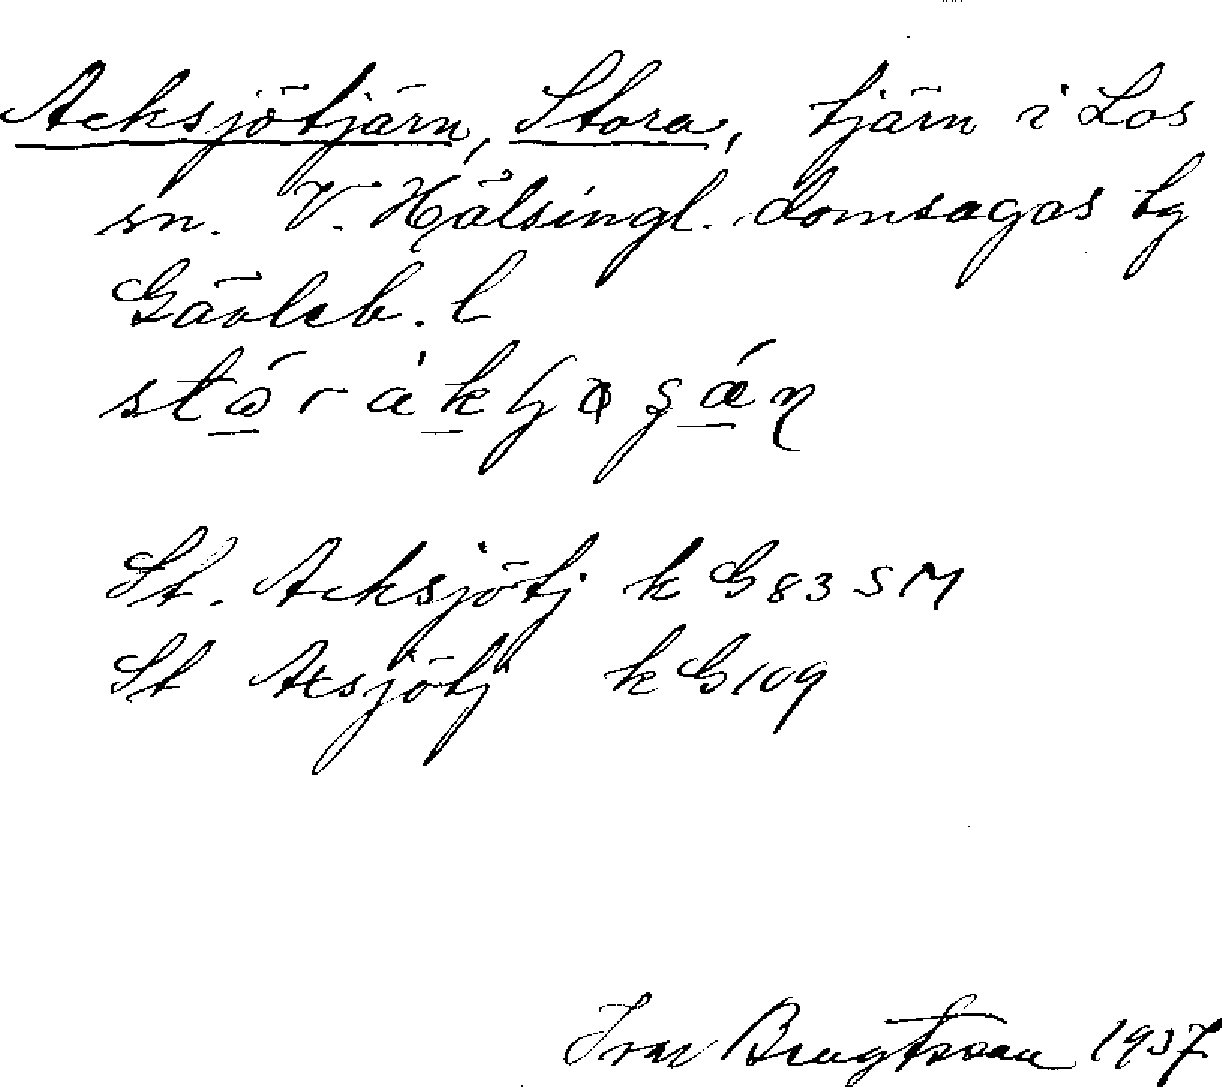 Acksjötjärn, Stora, tjärn i Los
sn. V. Hälsingl. domsagas tg
Gävleb. l
St. Acksjötj k G 83 SM
St Acsjötj k G 109
Ivar Bengtsson 1937